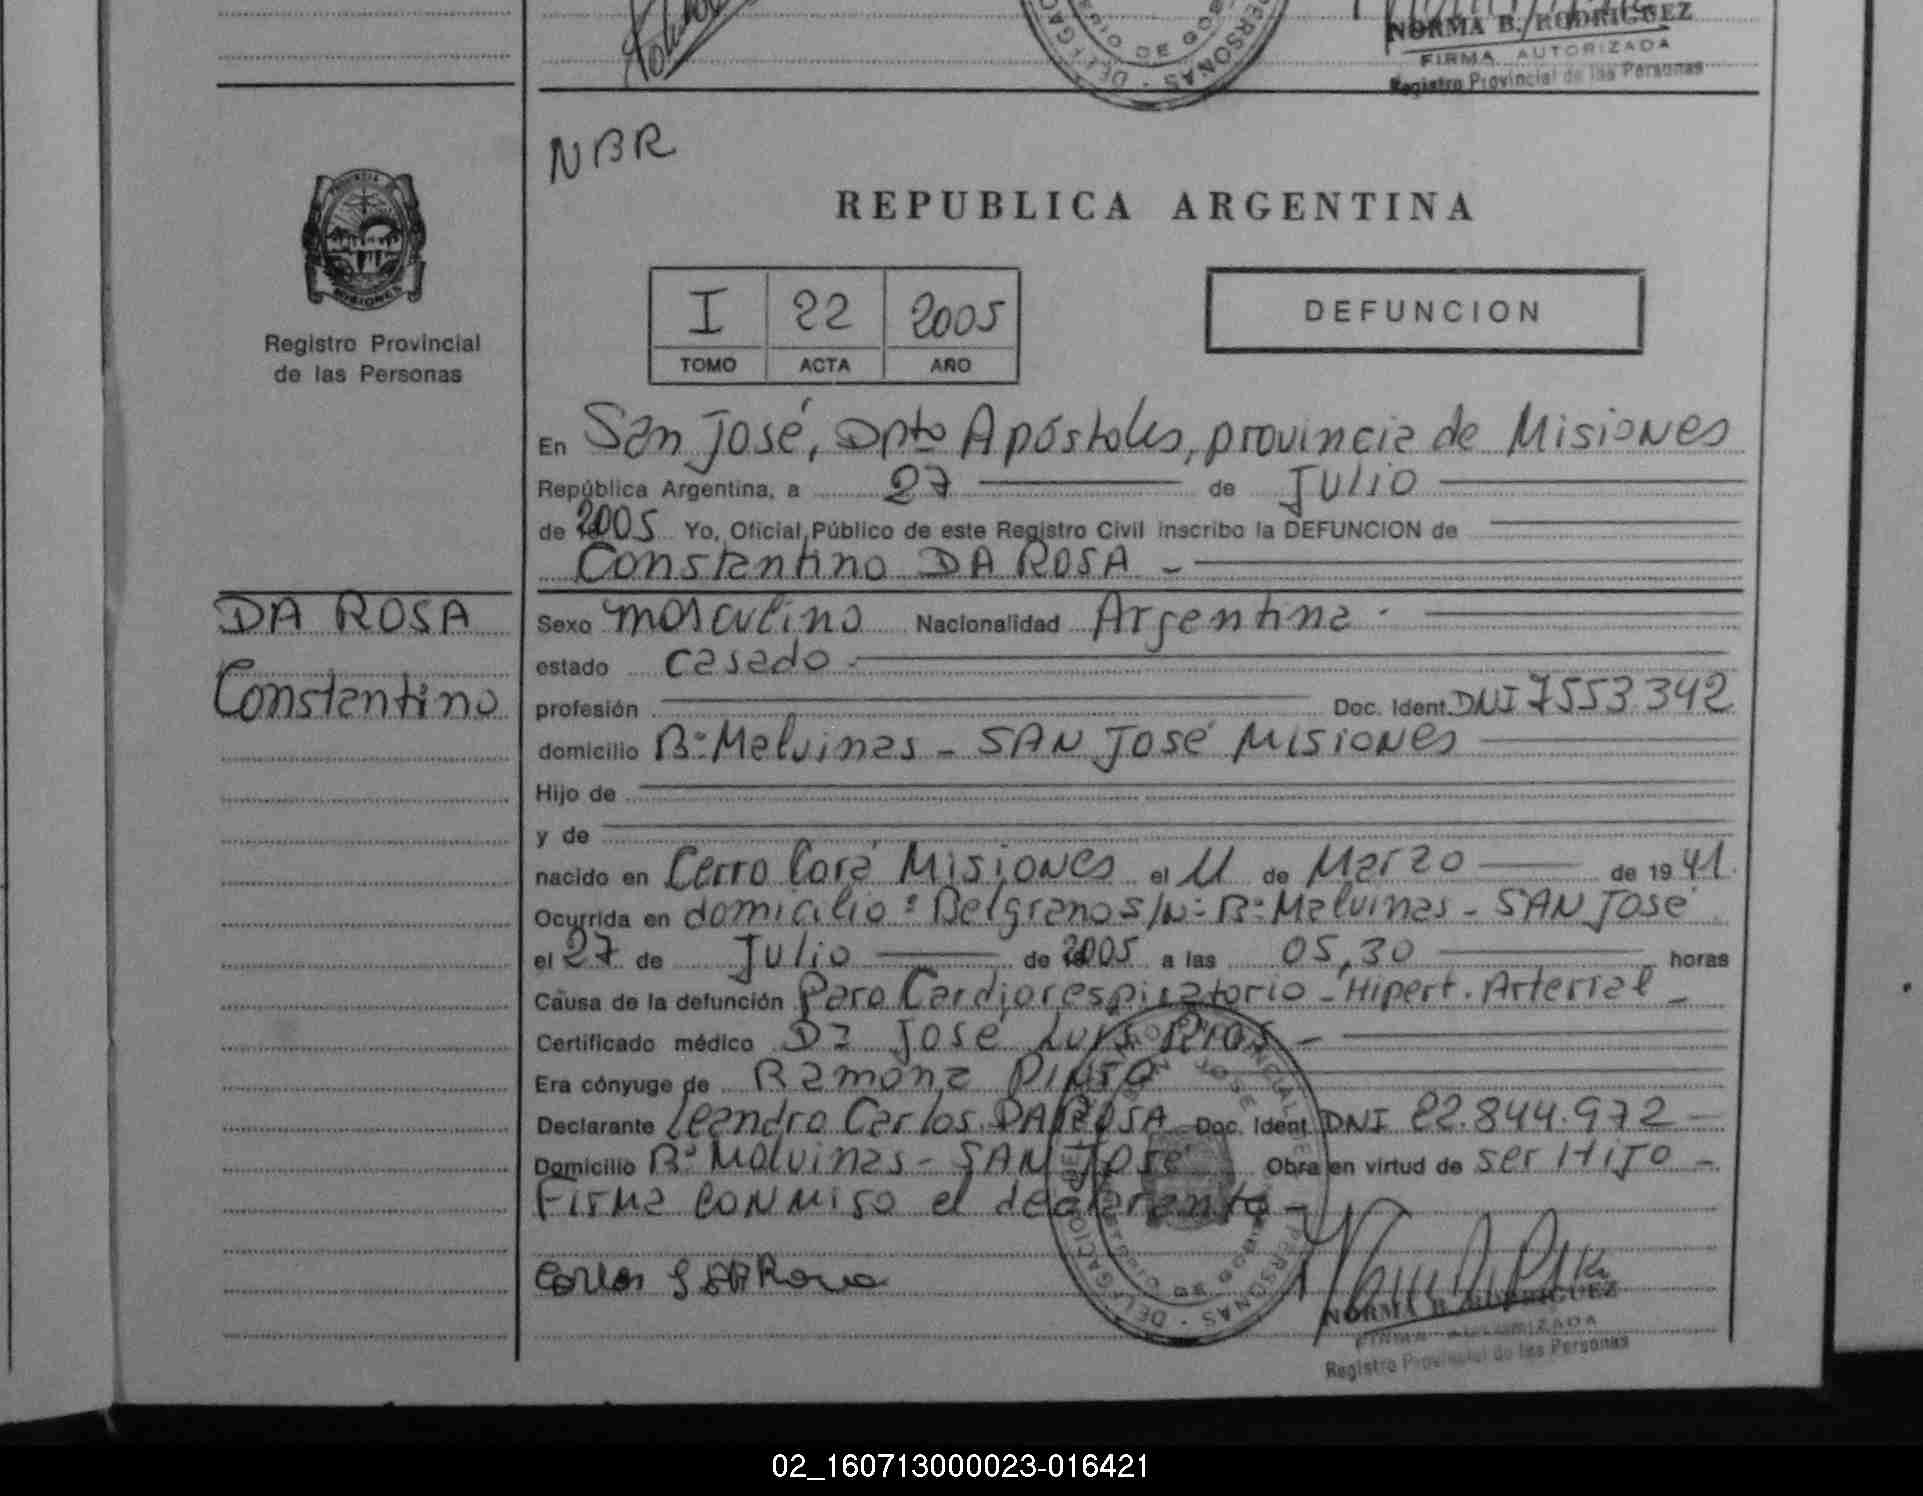 NORMA B. RODRIGUEZ
FIRMA AUTORIZADA
Registro Provincial de las Personas
NBR
REPUBLICA ARGENTINA
PROVINCIA DE
MISIONES
Registro Provincial
de las Personas
I 22 2005
TOMO ACTA AÑO
DEFUNCION
En San José, Dpto Apóstoles, provincia de Misiones
República Argentina, a 27 de Julio
de 2005 Yo, Oficial Público de este Registro Civil inscribo la DEFUNCION de
Constantino DA ROSA -
DA ROSA
Constantino
Sexo masculino Nacionalidad Argentina.
estado casado.
profesión Doc. Ident. DNI 7553342
domicilio Bº Malvinas - SAN José Misiones
Hijo de
y de
nacido en Cerro Corá Misiones el 11 de Marzo de 1941.
Ocurrida en domicilio: Belgrano S/Nº Bº Malvinas - SAN José
el 27 de Julio de 2005 a las 05,30 horas
Causa de la defunción Paro Cardiorespiratorio - Hipert. Arterial -
Certificado médico Dr José Luis -
Era cónyuge de Ramona PINTO
Declarante Leandro Carlos DA ROSA Doc. Ident. DNI 22.844.972 -
Domicilio Bº Malvinas - SAN José Obra en virtud de ser HIJO -
Firma CONMIGO el declarante -
Carlos
NORMA B. RODRIGUEZ
FIRMA AUTORIZADA
Registro Provincial de las Personas
02_160713000023-016421